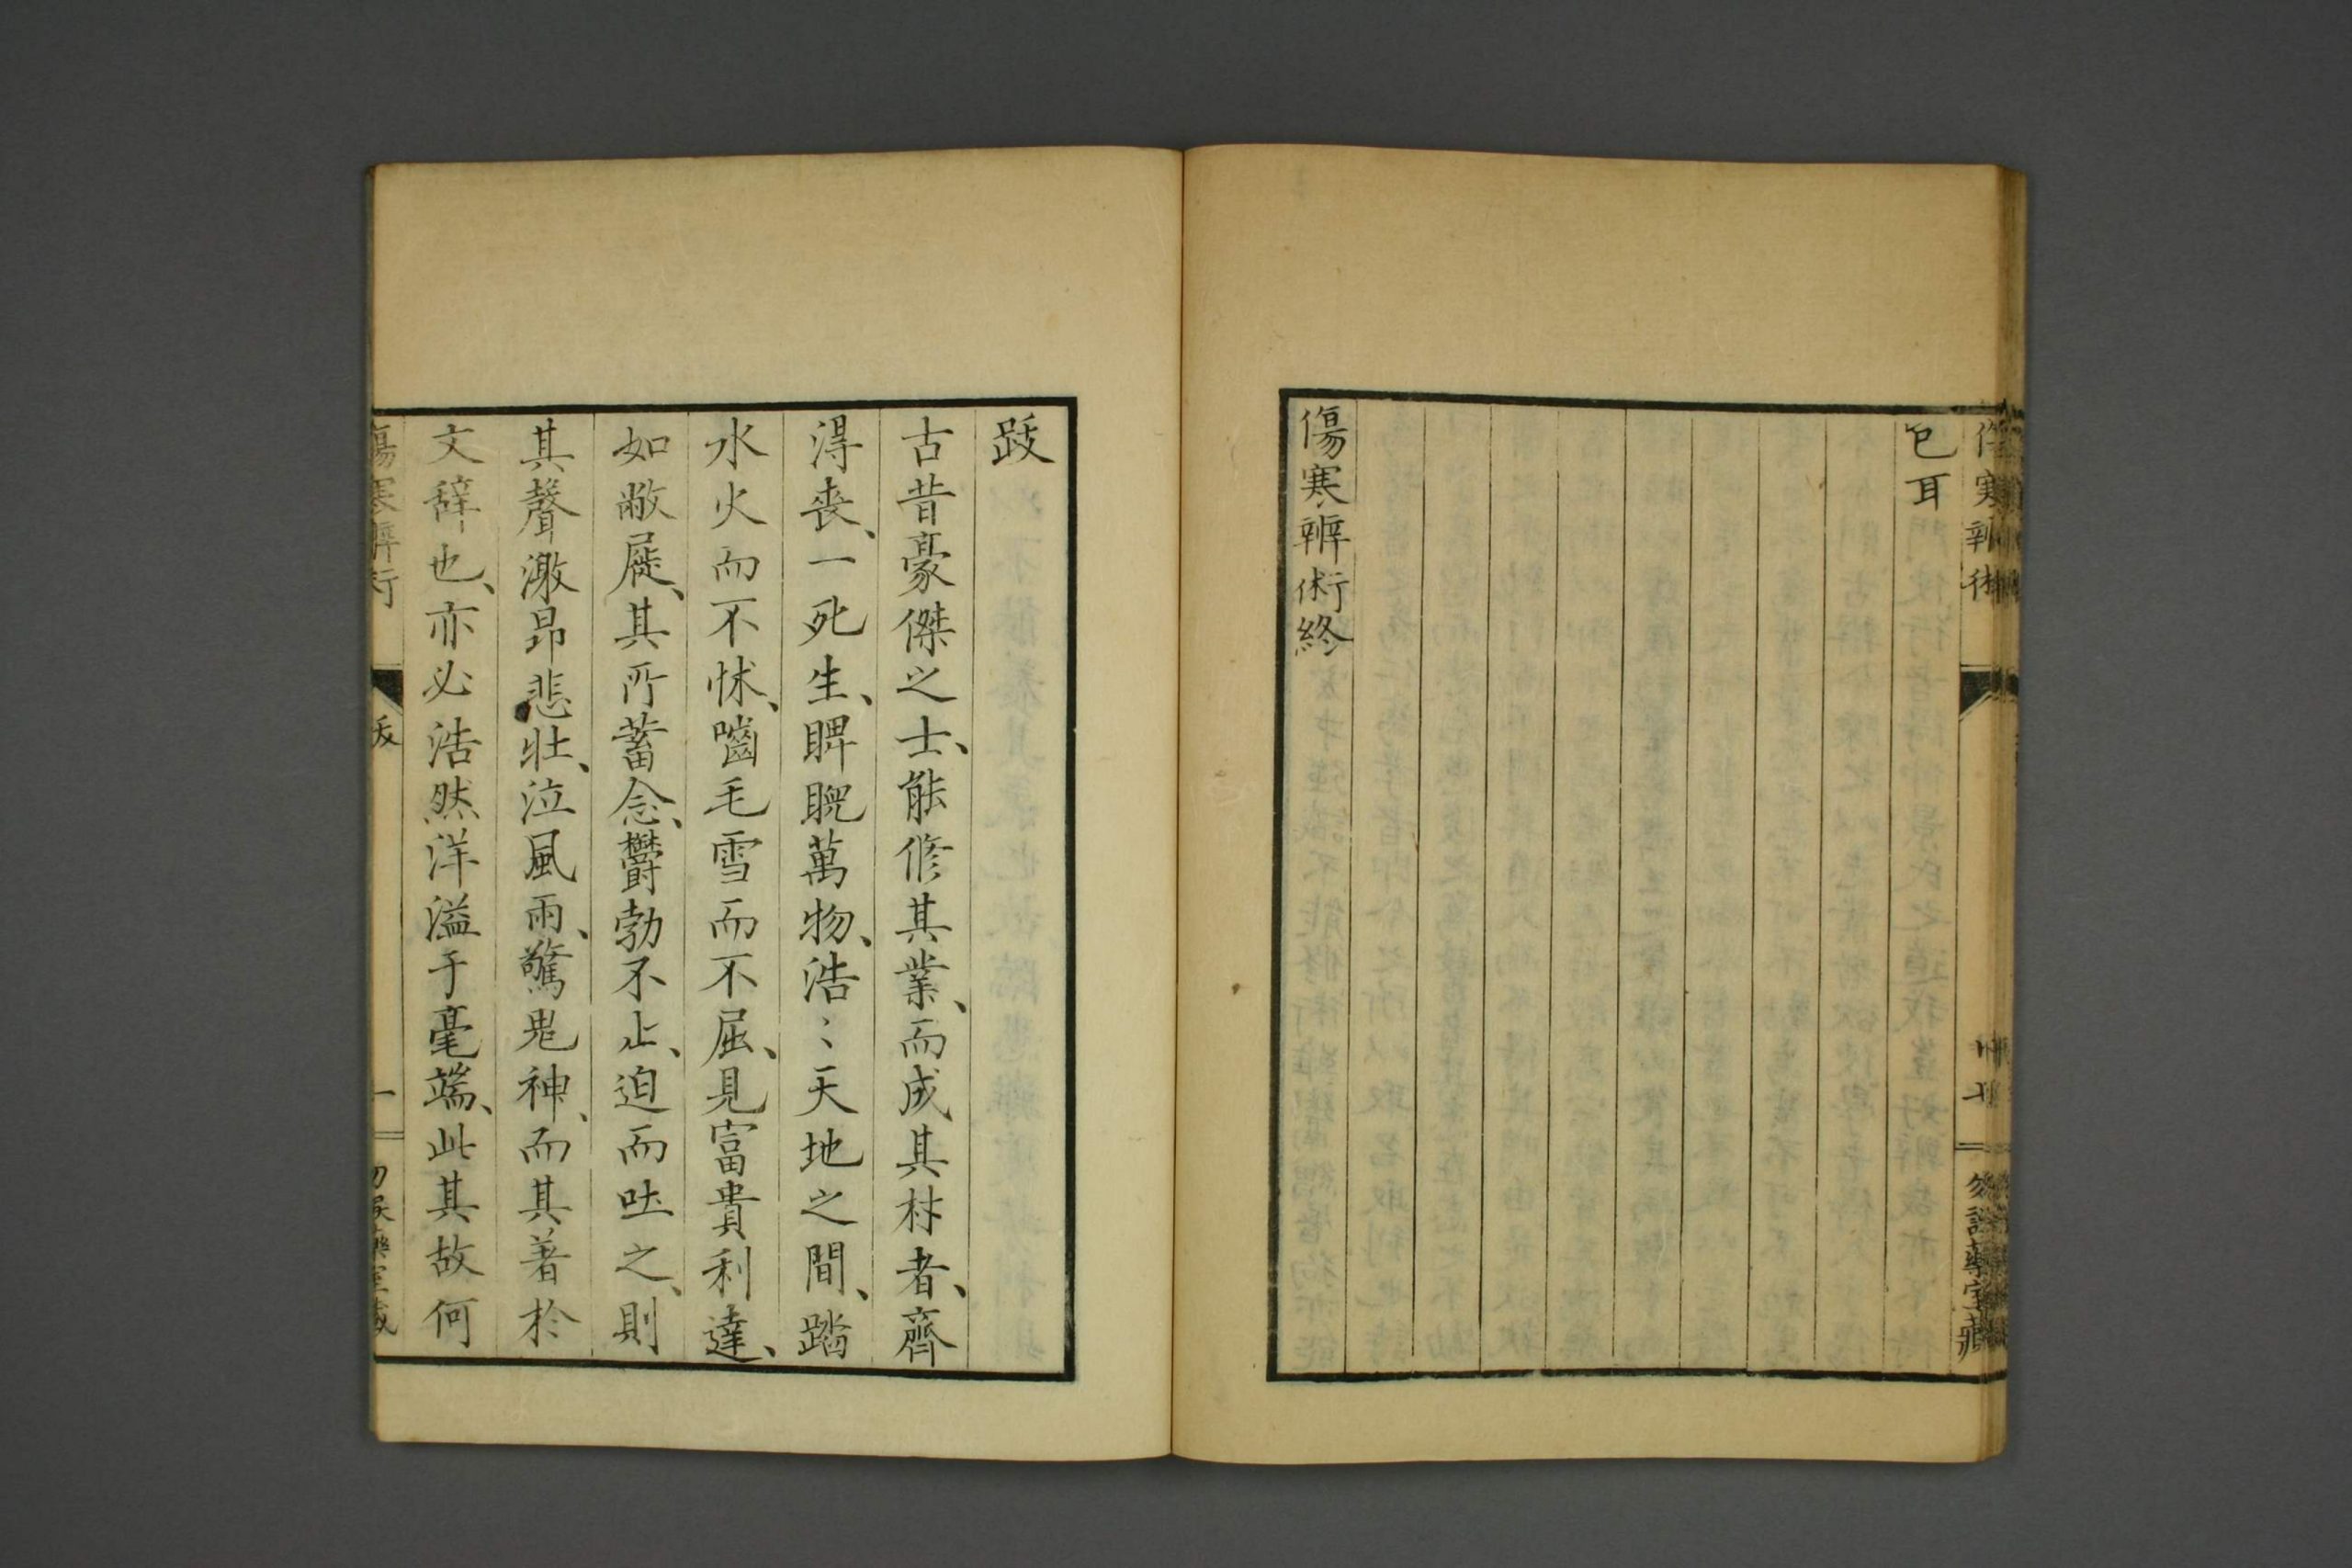 寒辨術
已耳
傷寒辨術終
跋
古昔豪傑之士、能修其業、而成其材者、齊
得喪、一死生、睥睨萬物、浩〻天地之間、踏
水火而不怵、嚙毛雪而不屈、見富貴利達、
如敝屣、其所蓄念、欝勃不止、迫而吐之、則
其聲激昂悲壮、泣風雨、驚鬼神、而其著於
文辞也、亦必浩然洋溢于毫端、此其故何